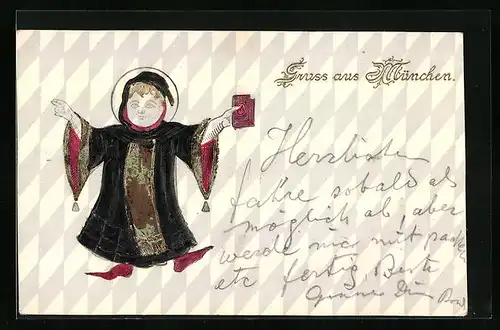 Gruss aus München.
Herzlichen
fahre sobald als
möglich ab, aber
werde nur mit
etc fertig, Beste